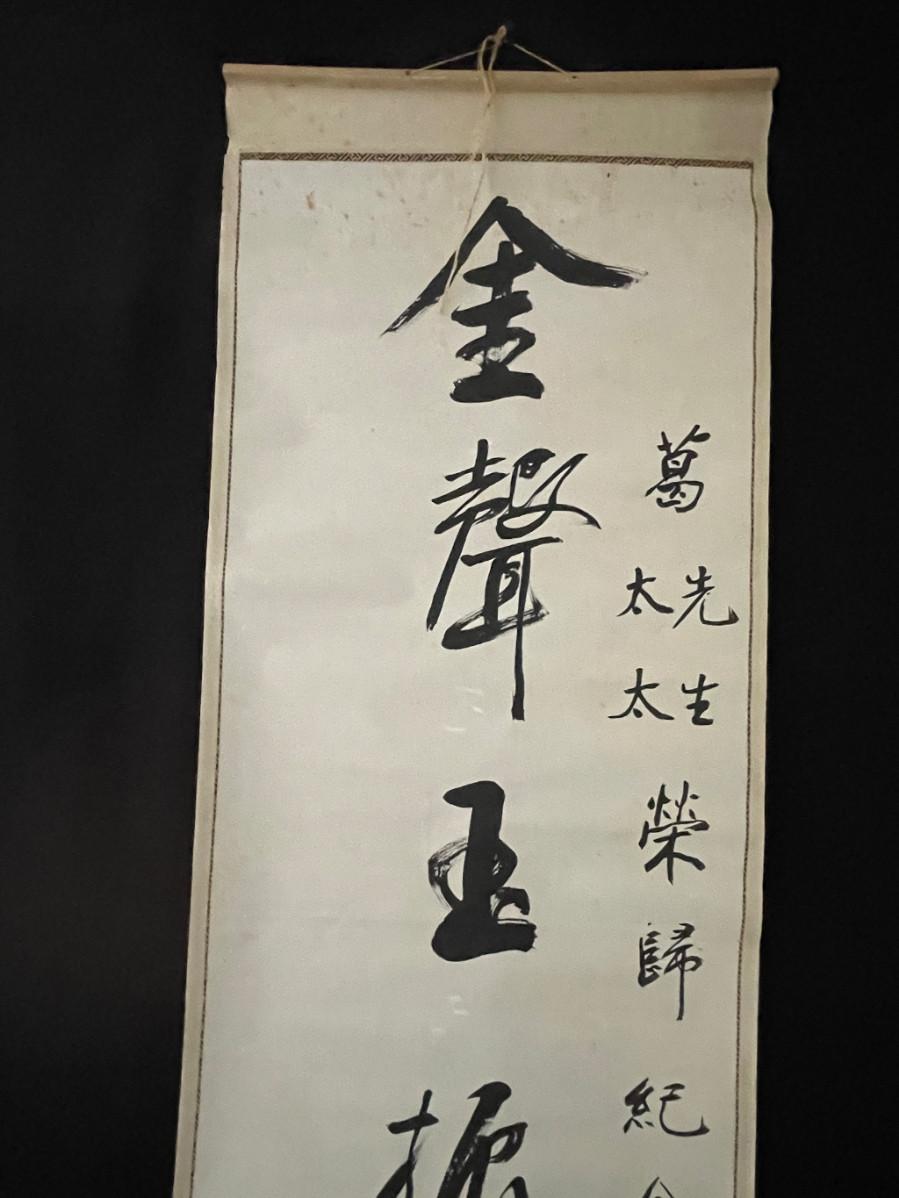 葛先生太太榮歸紀念
金聲玉振